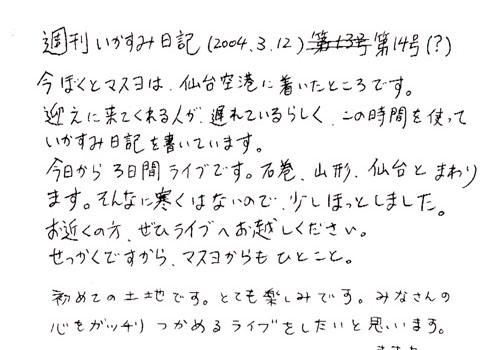 週刊いかすみ日記(2004.3.12)第13号第14号(?)
今ぼくとマスヨは、仙台空港に着いたところです。
迎えに来てくれる人が、遅れているらしく、この時間を使って
いかすみ日記を書いています。
今日から3日間ライブです。石巻、山形、仙台とまわり
ます。そんなに寒くはないので、少しほっとしました。
お近くの方、ぜひライブへお越しください。
せっかくですから、マスヨからもひとこと。
初めての土地です。とても楽しみです。みなさんの
心をガッチリつかめるライブをしたいと思います。